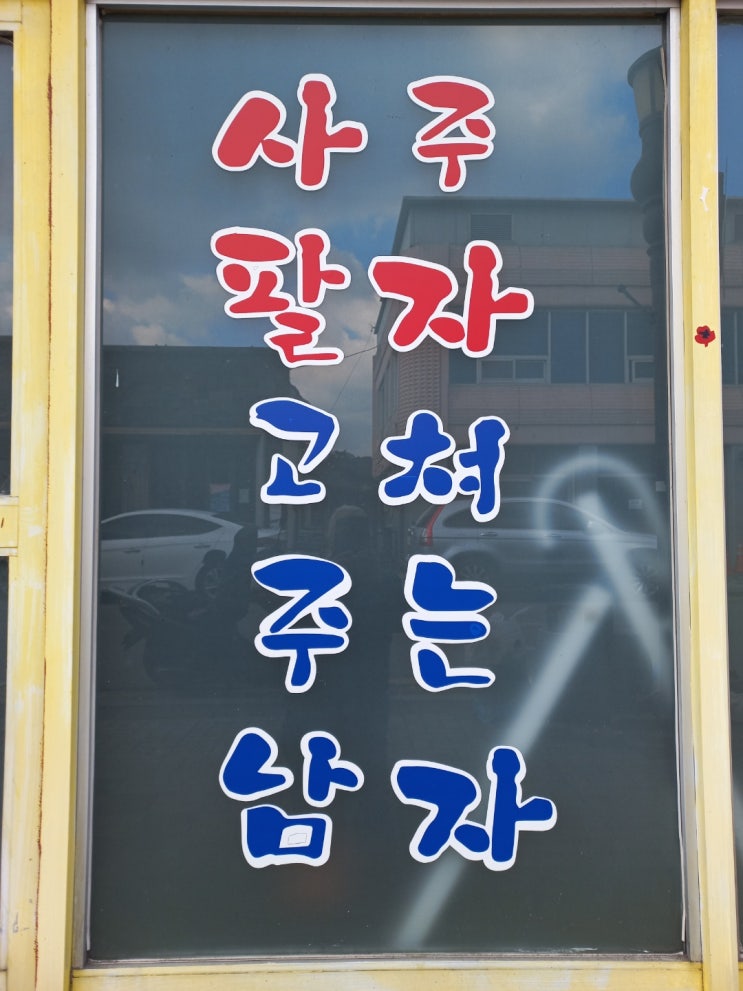 사주
팔자
고쳐
주는
남자